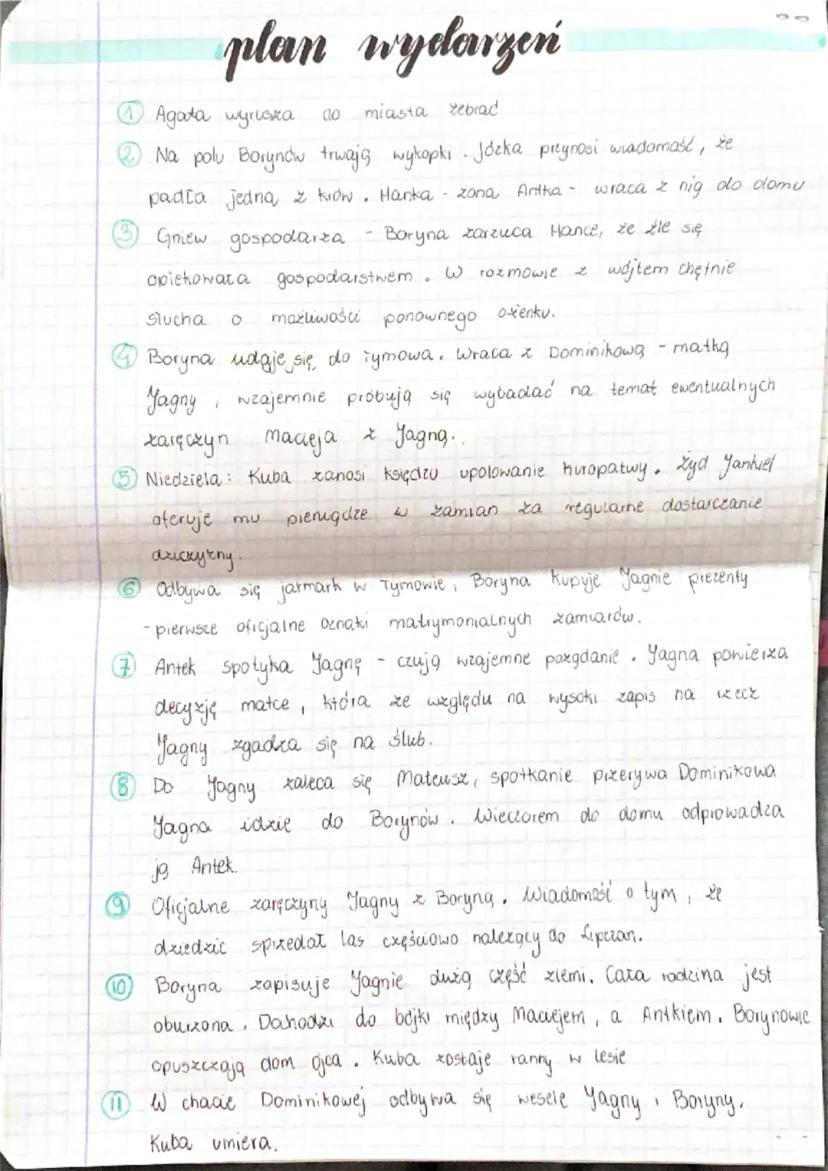 plan wydarzeń
1 Agata wyrusza do miasta żebrać
2 Na polu Borynów trwają wykopki. Józka przynosi wiadomość, że
padła jedna z krów. Hanka - żona Antka - wraca z nią do domu
3 Gniew gospodarza - Boryna zarzuca Hance, że źle się
opiekowała gospodarstwem. W rozmowie z wójtem chętnie
słucha o możliwości ponownego ożenku.
4 Boryna udaje się do Tymowa. Wraca z Dominikową - matką
Jagny, wzajemnie próbują się wybadać na temat ewentualnych
zaręczyn Macieja z Jagną..
5 Niedziela: Kuba zanosi księdzu upolowanie kuropatwy. Żyd Jankiel
oferuje mu pieniądze w zamian za regularne dostarczanie
dziczyzny.
6 Odbywa się jarmark w Tymowie, Boryna kupuje Jagnie prezenty
- pierwsze oficjalne oznaki matrymonialnych zamiarów.
7 Antek spotyka Jagnę - czują wzajemne pożądanie. Jagna powierza
decyzję matce, która ze względu na wysoki zapis na rzecz
Jagny zgadza się na ślub.
8 Do Jagny zaleca się Mateusz, spotkanie przerywa Dominikowa
Jagna idzie do Borynów. Wieczorem do domu odprowadza
ją Antek.
9 Oficjalne zaręczyny Jagny z Boryną. Wiadomość o tym, że
dziedzic sprzedał las częściowo należący do Lipczan.
10 Boryna zapisuje Jagnie dużą część ziemi. Cała rodzina jest
oburzona. Dochodzi do bójki między Maciejem, a Antkiem. Borynowie
opuszczają dom ojca. Kuba zostaje ranny w lesie
11 W chacie Dominikowej odbywa się wesele Jagny i Boryny.
Kuba umiera.